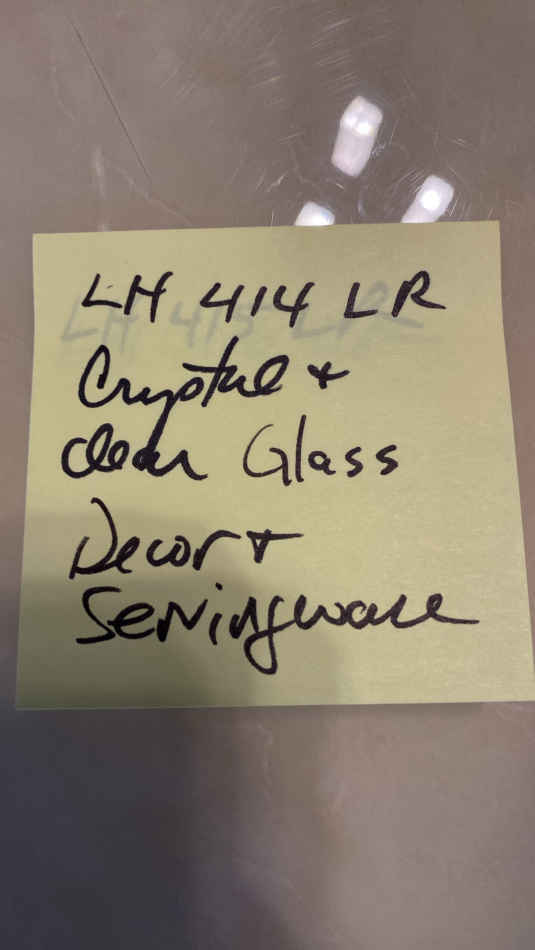 LH 414 LR
Crystal +
clear Glass
Decor +
Servingware